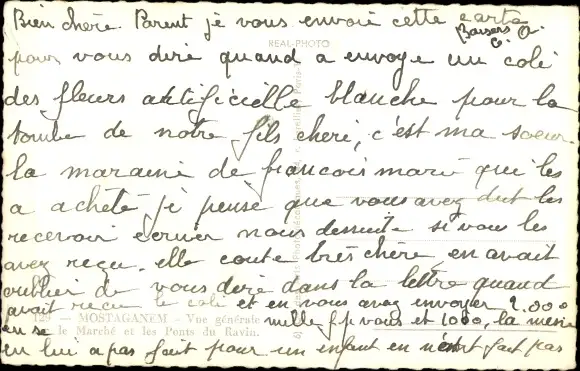 Bien chère. Parent je vous envoie cette carte
Baisers
REAL-PHOTO
pour vous dire quand a envoye un coli
des fleurs artificielle blanche pour la
tombe de notre fils cheri, c'est ma soeur
la maraine de francois marie qui les
a acheté je pense que vous avez dut les
recevoir ecriver nous dessuite si vous les
avez reçu. elle coute très chère, en avait
oublier de vous dire dans la lettre quand
avait reçu le coli et en vous avez envoyer 2.000
129 — MOSTAGANEM — Vue générale
mille f.p vous et 1000, la mésse
en se
le Marché et les Ponts du Ravin.
en lui a pas fait pour un enfant en fait pas